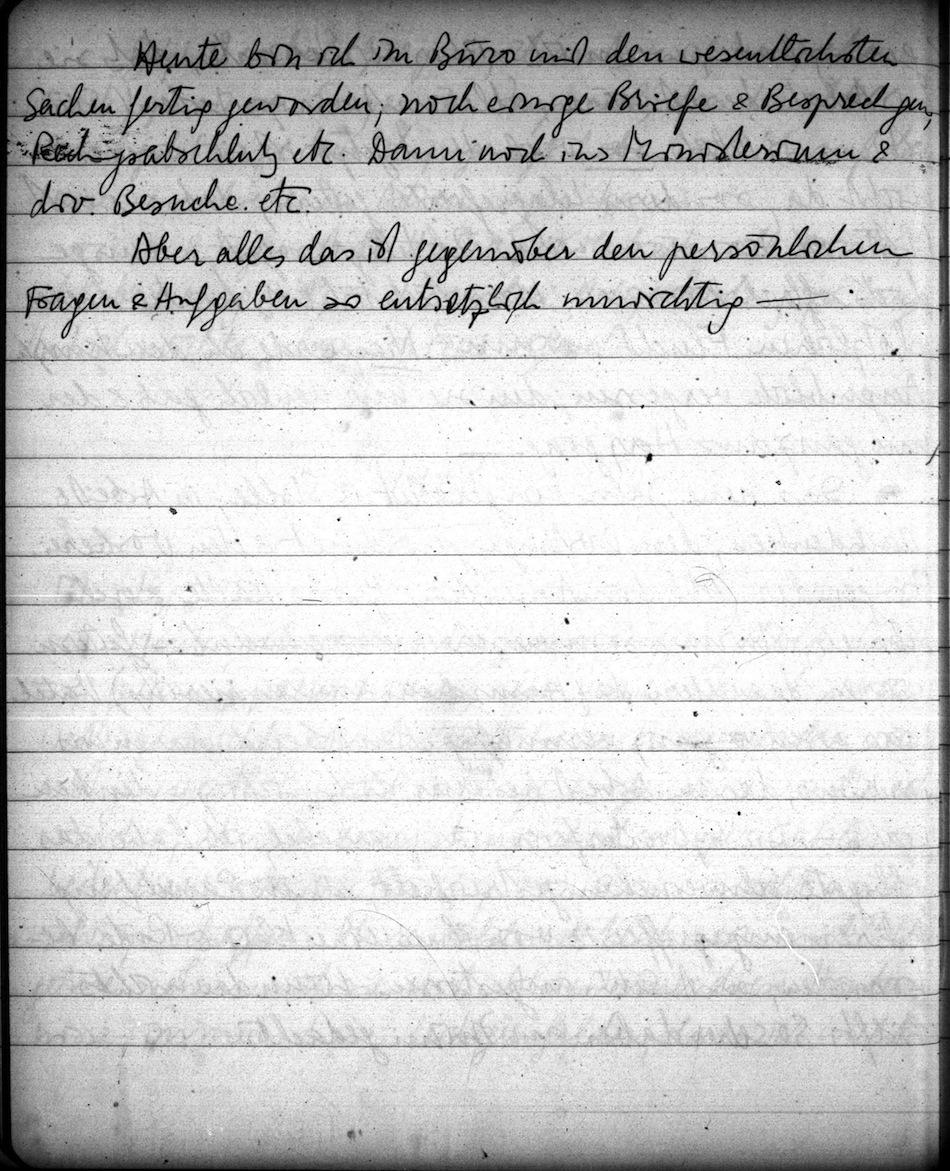 Heute bin ich im Büro mit den wesentlichsten
Sachen fertig geworden; noch einige Briefe & Besprechgen,
Rechgsabschluß etc. Dann noch ins Ministerium &
div. Besuche. etc.
Aber alles das ist gegenüber den persönlichen
Fragen & Aufgaben so entsetzlich unwichtig —.